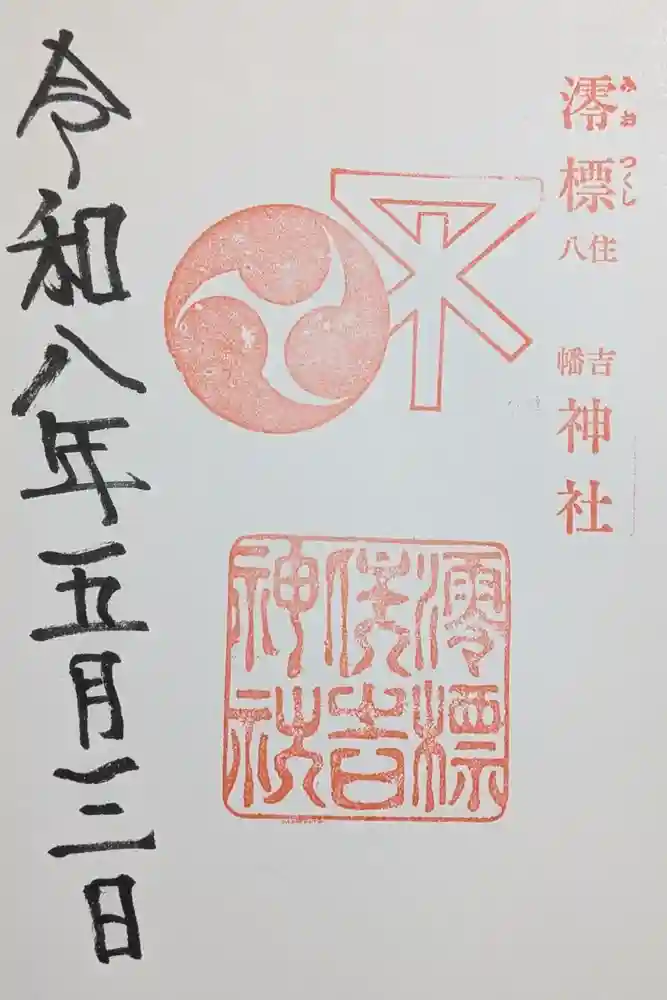 澪標住吉八幡神社
みおつくし
澪標
住吉
神社
令和八年五月三日